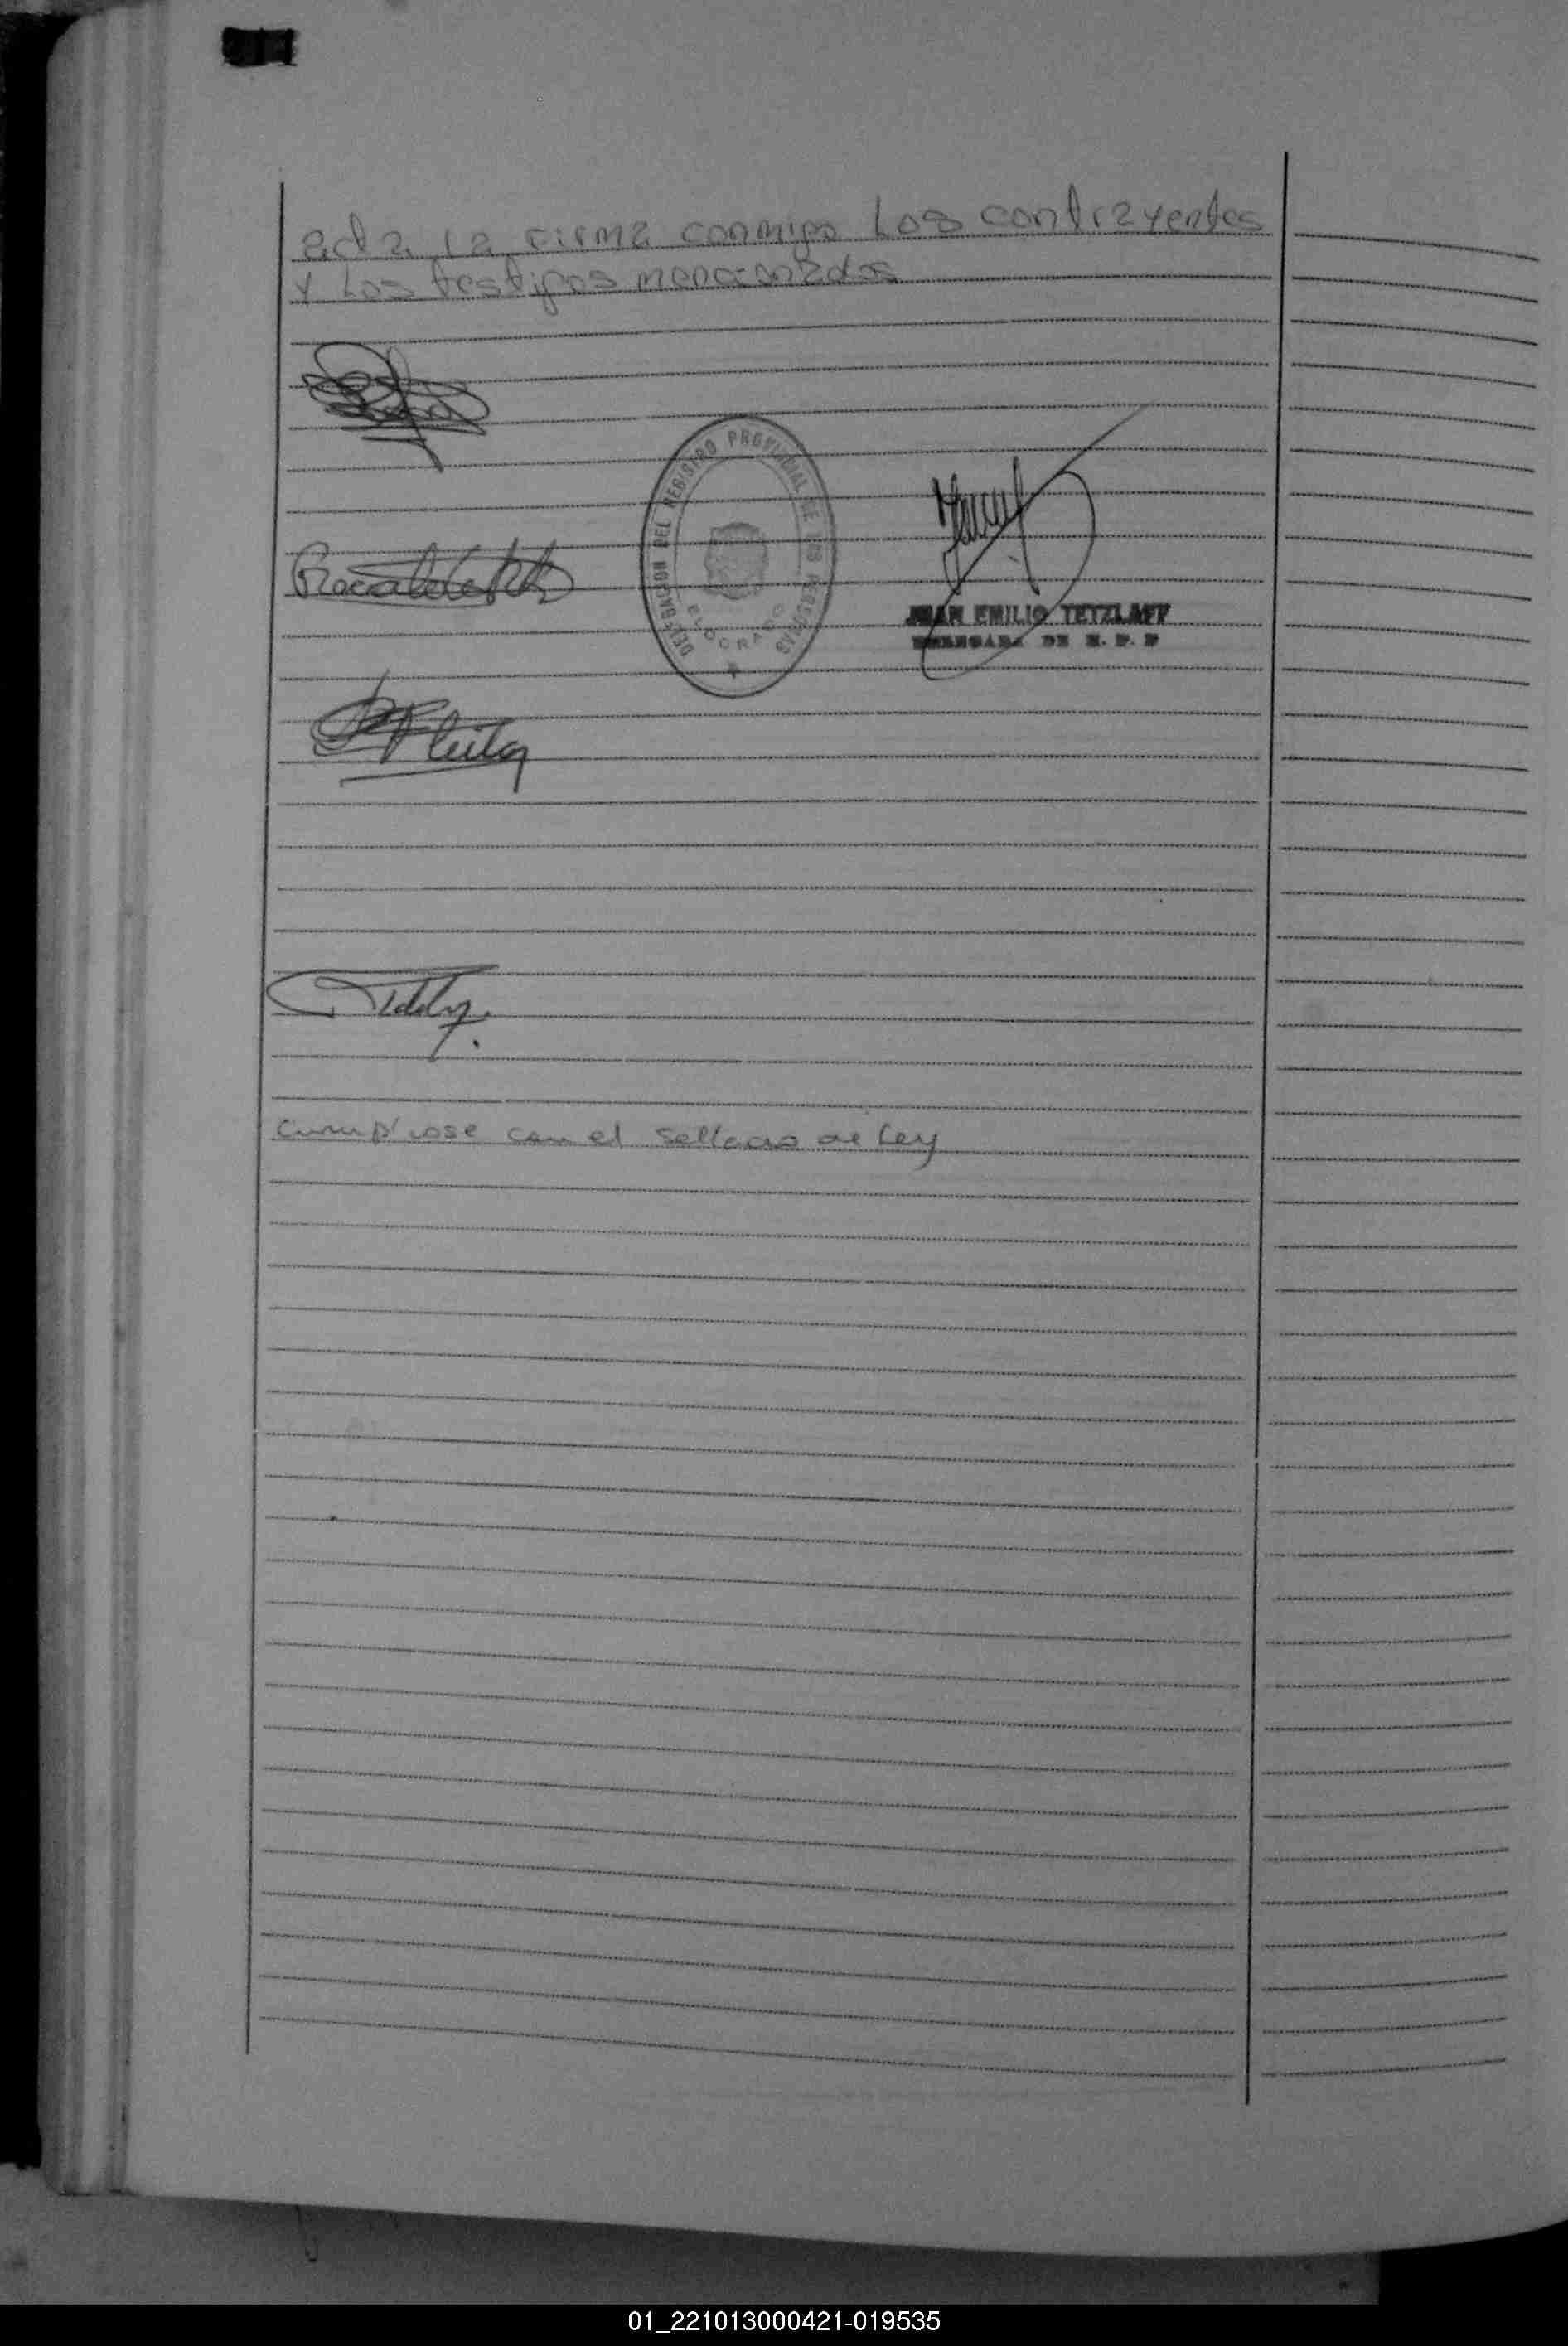 acta la firma conmigo Los contrayentes
y Los testigos mencionados
DELEGACION DEL REGISTRO PROVINCIAL DE LAS PERSONAS
ELDORADO
JUAN EMILIO TETZLAFF
DELEGADA DE R. P. P
Cumplióse con el sellado de Ley
01_221013000421-019535